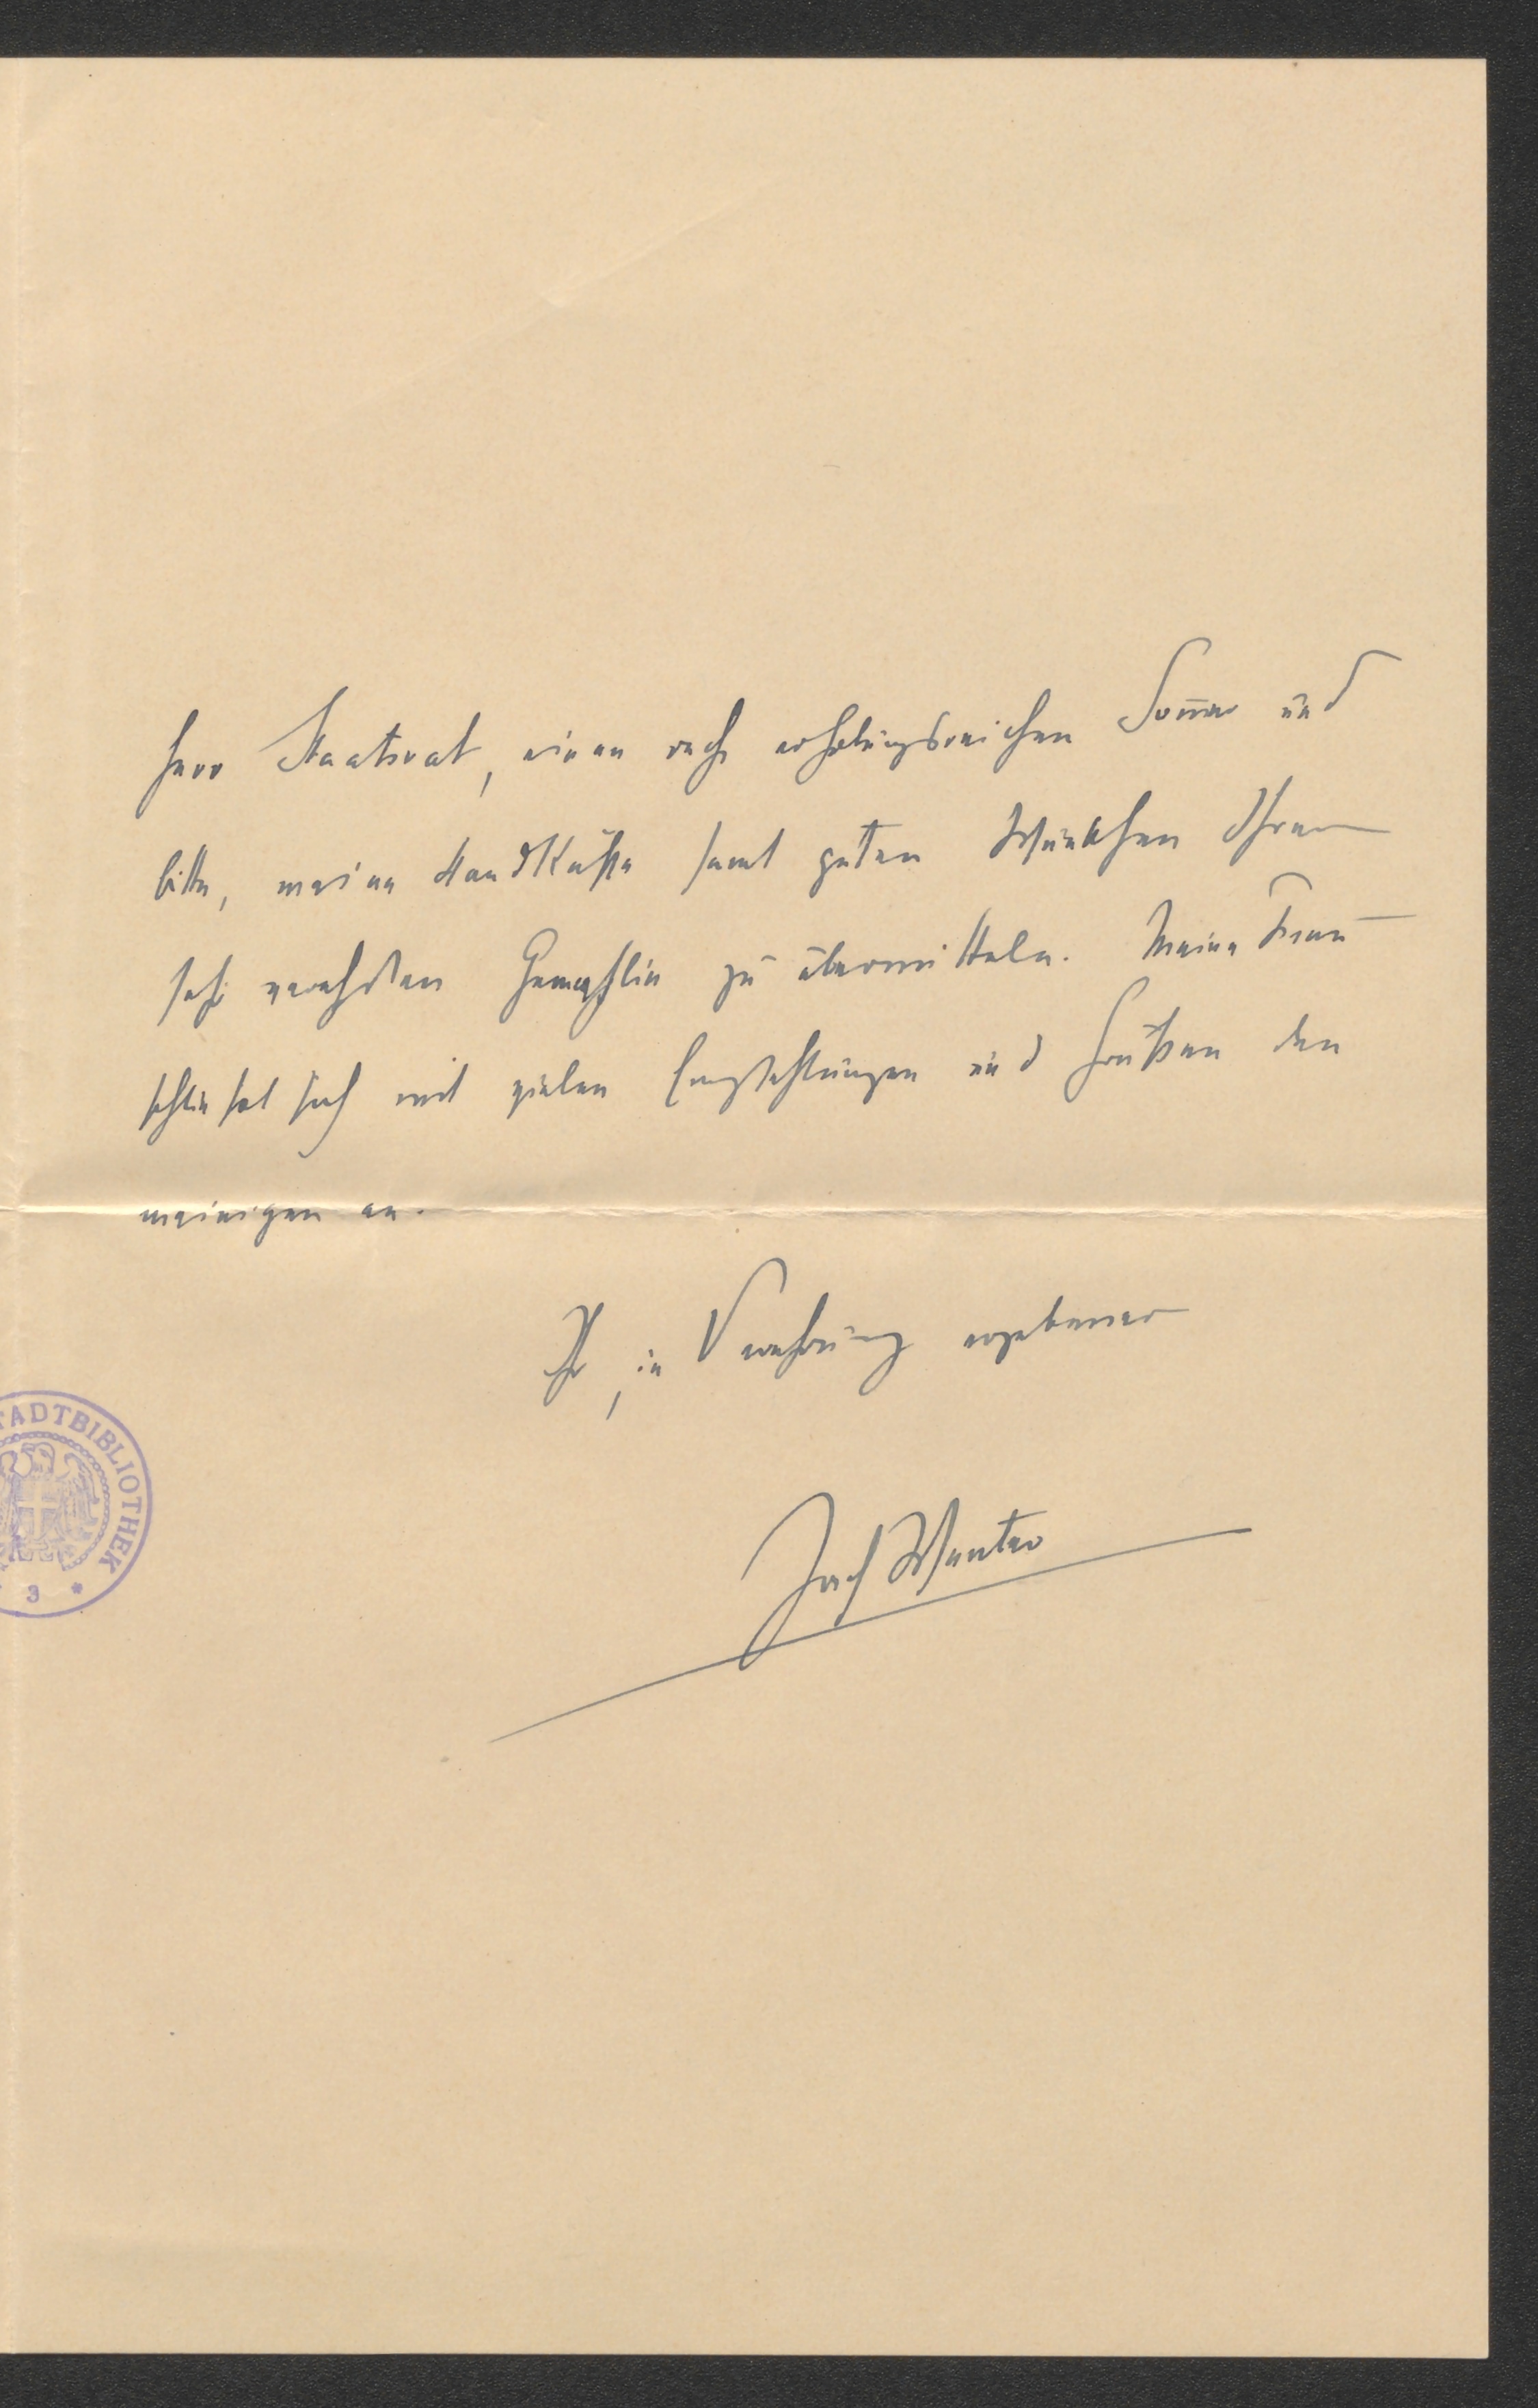 Herr Staatsrat, einen recht erholungsreichen Som̅er und
bitte, meine Handküsse samt guten Wünschen Ihrer
sehr verehrten Gemahlin zu übermitteln. Meine Frau
schließt sich mit vielen Empfehlungen und Grüßen den
meinigen an.
Ihr, in Verehrung ergebener
STADTBIBLIOTHEK
* 3 *